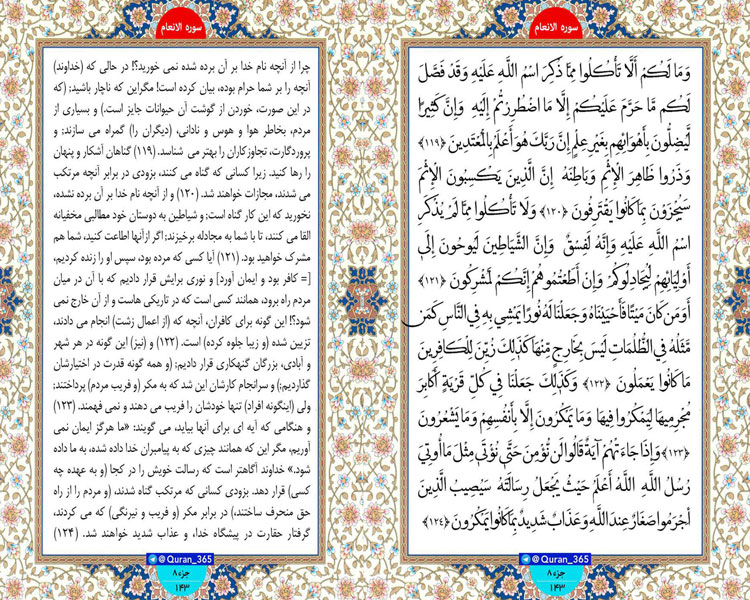 سوره الانعام
وَمَا لَكُمْ أَلَّا تَأْكُلُوا مِمَّا ذُكِرَ اسْمُ اللَّهِ عَلَيْهِ وَقَدْ فَصَّلَ
لَكُم مَّا حَرَّمَ عَلَيْكُمْ إِلَّا مَا اضْطُرِرْتُمْ إِلَيْهِ وَإِنَّ كَثِيرًا
لَّيُضِلُّونَ بِأَهْوَائِهِم بِغَيْرِ عِلْمٍ إِنَّ رَبَّكَ هُوَ أَعْلَمُ بِالْمُعْتَدِينَ ﴿۱۱۹﴾
وَذَرُوا ظَاهِرَ الْإِثْمِ وَبَاطِنَهُ إِنَّ الَّذِينَ يَكْسِبُونَ الْإِثْمَ
سَيُجْزَوْنَ بِمَا كَانُوا يَقْتَرِفُونَ ﴿۱۲۰﴾ وَلَا تَأْكُلُوا مِمَّا لَمْ يُذْكَرِ
اسْمُ اللَّهِ عَلَيْهِ وَإِنَّهُ لَفِسْقٌ وَإِنَّ الشَّيَاطِينَ لَيُوحُونَ إِلَىٰ
أَوْلِيَائِهِمْ لِيُجَادِلُوكُمْ وَإِنْ أَطَعْتُمُوهُمْ إِنَّكُمْ لَمُشْرِكُونَ ﴿۱۲۱﴾
أَوَمَن كَانَ مَيْتًا فَأَحْيَيْنَاهُ وَجَعَلْنَا لَهُ نُورًا يَمْشِي بِهِ فِي النَّاسِ كَمَن
مَّثَلُهُ فِي الظُّلُمَاتِ لَيْسَ بِخَارِجٍ مِّنْهَا كَذَٰلِكَ زُيِّنَ لِلْكَافِرِينَ
مَا كَانُوا يَعْمَلُونَ ﴿۱۲۲﴾ وَكَذَٰلِكَ جَعَلْنَا فِي كُلِّ قَرْيَةٍ أَكَابِرَ
مُجْرِمِيهَا لِيَمْكُرُوا فِيهَا وَمَا يَمْكُرُونَ إِلَّا بِأَنفُسِهِمْ وَمَا يَشْعُرُونَ
﴿۱۲۳﴾ وَإِذَا جَاءَتْهُمْ آيَةٌ قَالُوا لَن نُّؤْمِنَ حَتَّىٰ نُؤْتَىٰ مِثْلَ مَا أُوتِيَ
رُسُلُ اللَّهِ اللَّهُ أَعْلَمُ حَيْثُ يَجْعَلُ رِسَالَتَهُ سَيُصِيبُ الَّذِينَ
أَجْرَمُوا صَغَارٌ عِندَ اللَّهِ وَعَذَابٌ شَدِيدٌ بِمَا كَانُوا يَمْكُرُونَ ﴿۱۲۴﴾
@Quran_365
جزء ۸
۱۴۳
سوره الانعام
چرا از آنچه نام خدا بر آن برده شده نمی خورید؟! در حالی که (خداوند)
آنچه را بر شما حرام بوده، بیان کرده است! مگراین که ناچار باشید؛ (که
در این صورت، خوردن از گوشت آن حیوانات جایز است.) و بسیاری از
مردم، بخاطر هوا و هوس و نادانی، (دیگران را) گمراه می سازند؛ و
پروردگارت، تجاوزکاران را بهتر می شناسد. (۱۱۹) گناهان آشکار و پنهان
را رها کنید. زیرا کسانی که گناه می کنند، بزودی در برابر آنچه مرتکب
می شدند، مجازات خواهند شد. (۱۲۰) و از آنچه نام خدا بر آن برده نشده،
نخورید که این کار گناه است؛ و شیاطین به دوستان خود مطالبی مخفیانه
القا می کنند، تا با شما به مجادله برخیزند؛ اگر ازآنها اطاعت کنید، شما هم
مشرک خواهید بود. (۱۲۱) آیا کسی که مرده بود، سپس او را زنده کردیم،
[= کافر بود و ایمان آورد] و نوری برایش قرار دادیم که با آن در میان
مردم راه برود، همانند کسی است که در تاریکی هاست و از آن خارج نمی
شود؟! این گونه برای کافران، آنچه که (از اعمال زشت) انجام می دادند،
تزیین شده (و زیبا جلوه کرده) است. (۱۲۲) و (نیز) این گونه در هر شهر
و آبادی، بزرگان گنهکاری قرار دادیم؛ (و همه گونه قدرت در اختیارشان
گذاردیم؛) و سرانجام کارشان این شد که به مکر (و فریب مردم) پرداختند؛
ولی (اینگونه افراد) تنها خودشان را فریب می دهند و نمی فهمند. (۱۲۳)
و هنگامی که آیه ای برای آنها بیاید، می گویند: «ما هرگز ایمان نمی
آوریم، مگر این که همانند چیزی که به پیامبران خدا داده شده، به ما داده
شود.» خداوند آگاهتر است که رسالت خویش را در کجا (و به عهده چه
کسی) قرار دهد. بزودی کسانی که مرتکب گناه شدند، (و مردم را از راه
حق منحرف ساختند،) در برابر مکر (و فریب و نیرنگی) که می کردند،
گرفتار حقارت در پیشگاه خدا، و عذاب شدید خواهند شد. (۱۲۴)
@Quran_365
جزء ۸
۱۴۳